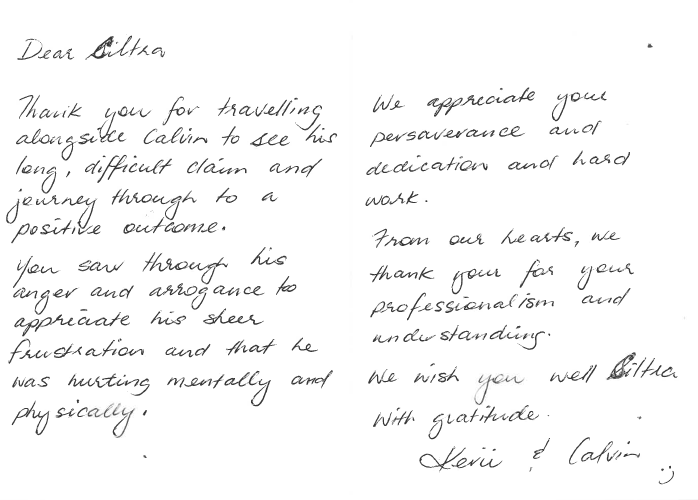 Dear Siltra
Thank you for travelling
alongside Calvin to see his
long, difficult claim and
journey through to a
positive outcome.
You saw through his
anger and arrogance to
appreciate his sheer
frustration and that he
was hurting mentally and
physically.
We appreciate your
persaverance and
dedication and hard
work.
From our hearts, we
thank your for your
professionalism and
understanding.
We wish you well Siltra
With gratitude.
Kerii & Calvin
:)